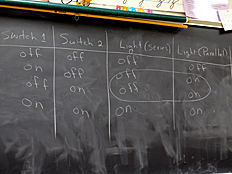 Switch 1 Switch 2 Light (Series) Light (Parallel)
off off off off
on off off on
off on off on
on on on on